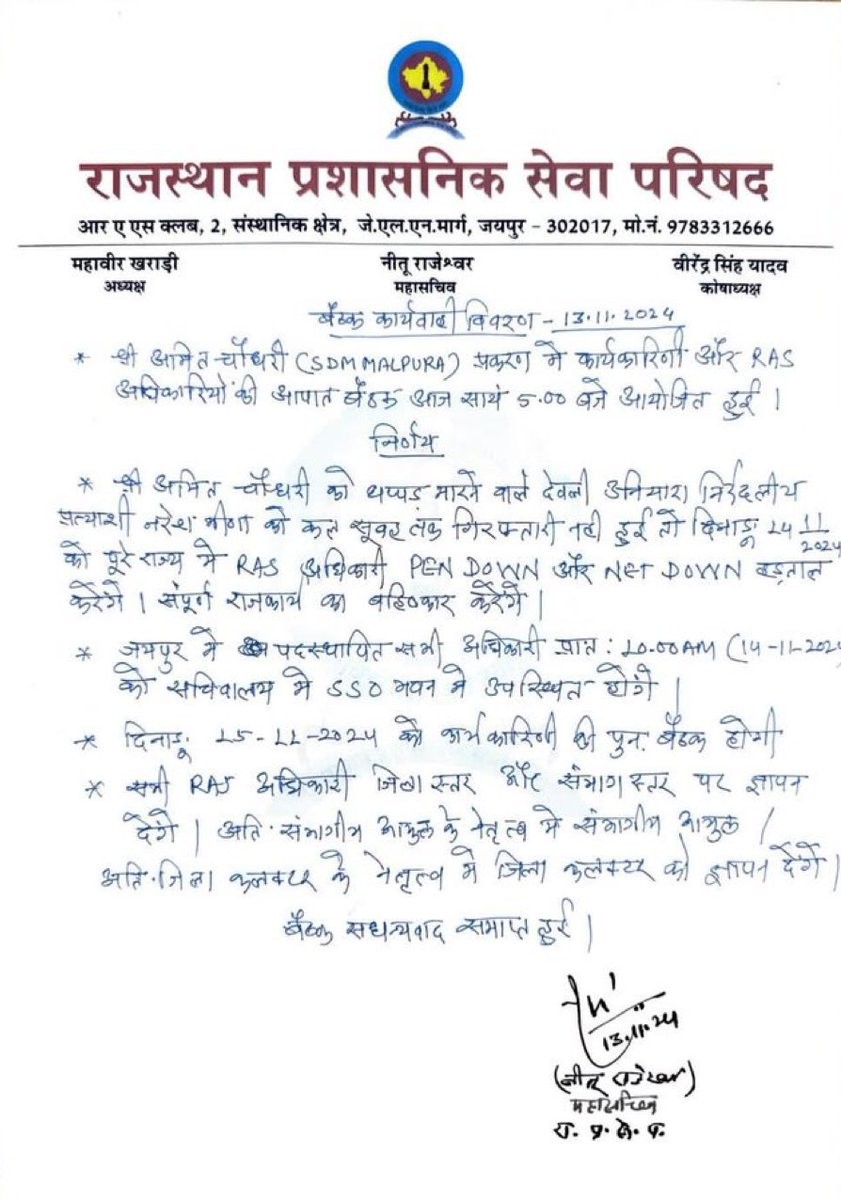 राजस्थान प्रशासनिक सेवा परिषद
आर ए एस क्लब, 2, संस्थानिक क्षेत्र, जे.एल.एन.मार्ग, जयपुर - 302017, मो.नं. 9783312666
महावीर खराड़ी नीतू राजेश्वर वीरेंद्र सिंह यादव
अध्यक्ष महासचिव कोषाध्यक्ष
बैठक कार्यवाही विवरण - 13.11.2024
* श्री अमित चौधरी (SDM MALPURA) प्रकरण मे कार्यकारिणी और RAS
अधिकारियों की आपात बैठक आज सायं 5.00 बजे आयोजित हुई।
निर्णय
* श्री अमित चौधरी को थप्पड़ मारने वाले देवली उनियारा निर्दलीय
प्रत्याशी नरेश मीणा को कल सुबह तक गिरफ्तारी नही हुई तो दिनाङ्क 14 11
2024
को पूरे राज्य मे RAS अधिकारी PEN DOWN और NET DOWN हड़ताल
करेंगे। संपूर्ण राजकार्य का बहिष्कार करेंगे।
* जयपुर मे पदस्थापित सभी अधिकारी प्रात: 10.00AM (14-11-2024
को सचिवालय मे SSO भवन मे उपस्थित होंगे।
* दिनाङ्क 15-11-2024 को कार्यकारिणी की पुन: बैठक होगी
* सभी RAS अधिकारी जिला स्तर और संभाग स्तर पर ज्ञापन
देंगे। अति. संभागीय आयुक्त के नेतृत्व मे संभागीय आयुक्त /
अति. जिला कलक्टर के नेतृत्व मे जिला कलक्टर को ज्ञापन देंगे।
बैठक सधन्यवाद समाप्त हुई।
13.11.24
(नीतू राजेश्वर)
महासचिव
रा. प्र. से. प.